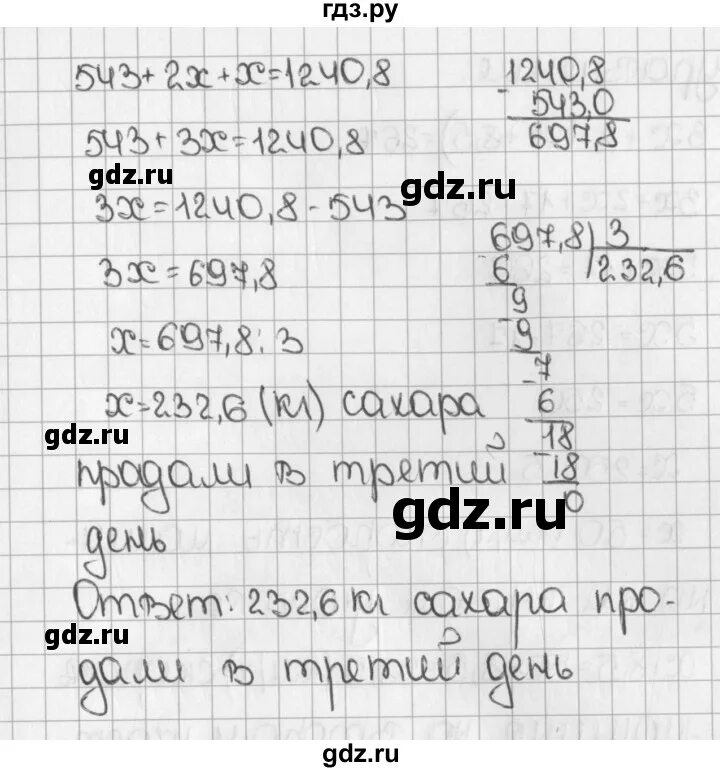 гдз.ру
543+2x+x=1240,8
543+3x=1240,8
3x=1240,8-543
3x=697,8
x=697,8:3
x=232,6 (кг) сахара
продали в третий
день
Ответ: 232,6 кг сахара про-
дали в третий день
1240,8
- 543,0
697,8
697,8 3
6 232,6
9
-9
-7
6
18
-18
0
gdz.ru
gdz.ru
gdz.ru
gdz.ru
gdz.ru
gdz.ru